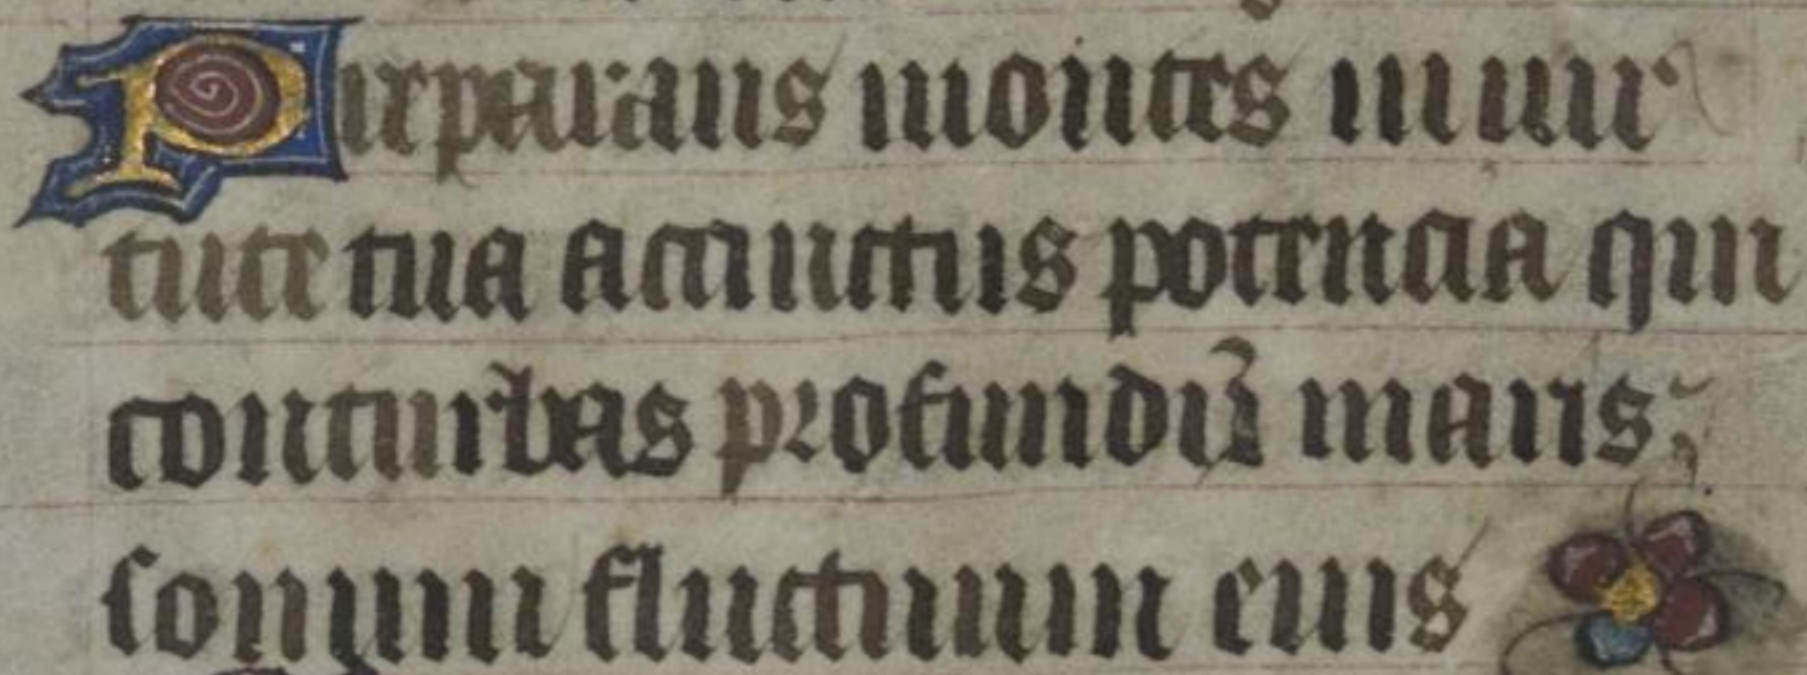 Preparans montes in uir
tute tua accinctus potencia qui
conturbas profundũ maris
sonum fluctuum eius